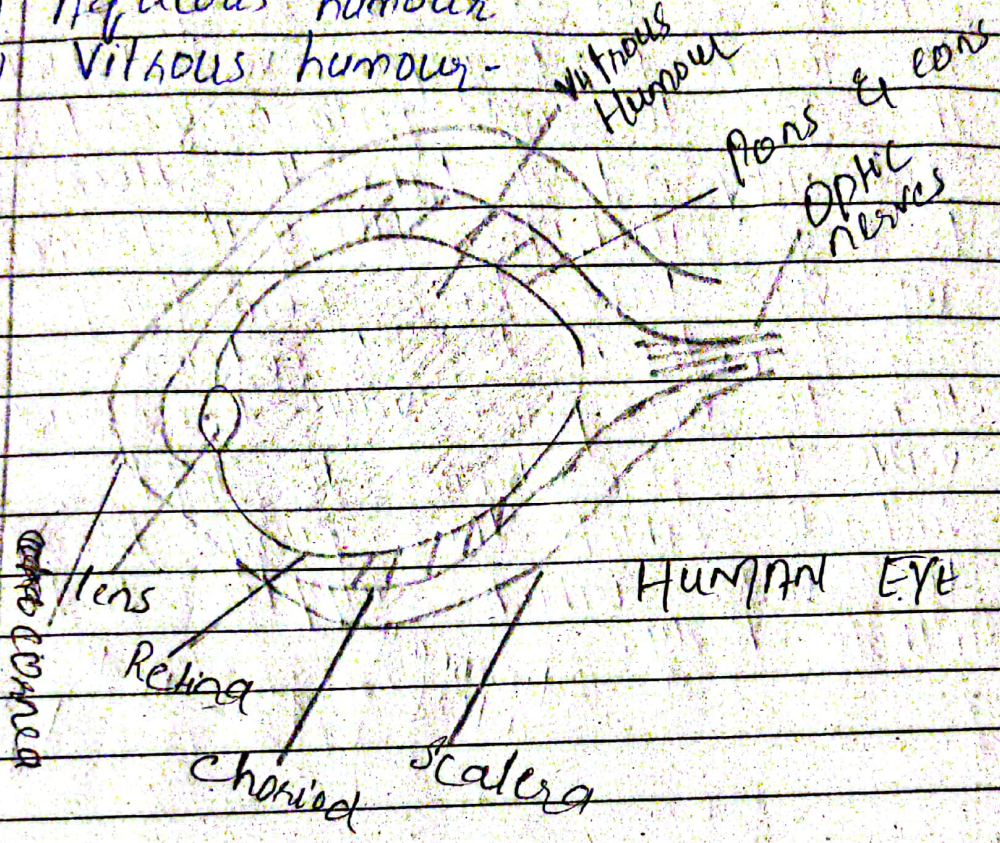 Aqueous humour
Vitrous humour-
Vutrous
Humour
Rons & cons
Optic
nerves
lens
HUMAN EYE
Retina
cornea
Choriod
Scalera